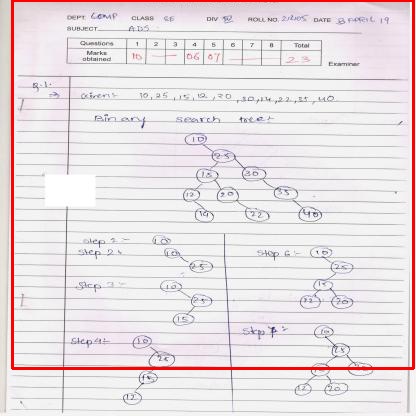 DEPT. COMP CLASS SE DIV B2 ROLL NO. 21205 DATE 8 APRIL 19
SUBJECT ADS
Questions 1 2 3 4 5 6 7 8 Total
Marks obtained 10 — — 06 07 23
Examiner
Q.1.
Given:- 10, 25, 15, 12, 20, 30, 14, 22, 35, 40.
Binary search tree:-
10
25
15 30
12 20 35
14 22 40
Step 1:- 10
Step 2:- 10
25
Step 3:- 10
25
15
Step 4:- 10
25
15
12
Step 6:- 10
25
15
12 20
Step 7:- 10
25
12 20